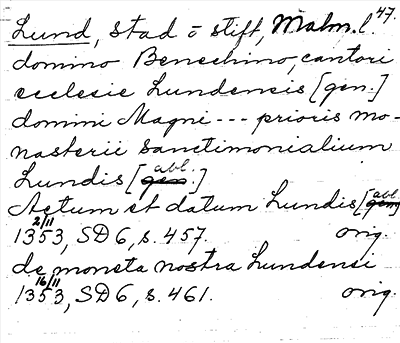 Lund, stad o stift, Malm. l. 47.
domino Benechino, cantori
ecclesie Lundensis [gen.]
domini Magni --- prioris mo-
nasterii sanctimonialium
Lundis [gen. abl.]
Actum et datum Lundis [gen. abl.
1353 2/11, SD 6, s. 457. orig.
de moneta nostra Lundensi
1353 16/11, SD 6, s. 461. orig.